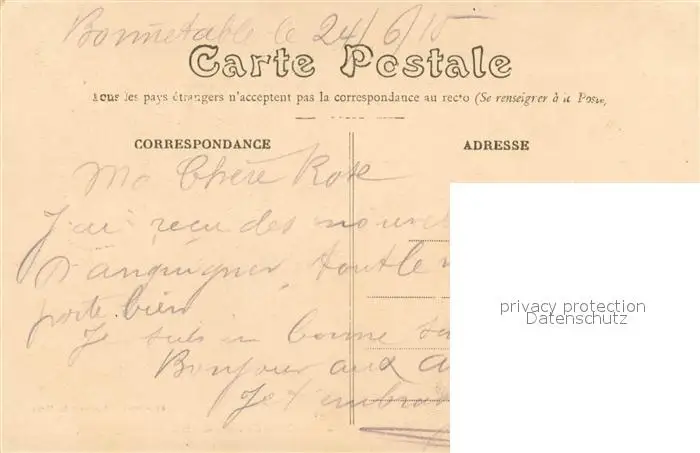 Bonnetable le 24/6/15
Carte Postale
Tous les pays étrangers n'acceptent pas la correspondance au recto (Se renseigner à la Poste)
CORRESPONDANCE
ADRESSE
Ma Chère Rose
J'ai reçu des nouvel
privacy protection
Datenschutz
tout le
porte bien
Je suis en bonne
Bonjour aux
Je t'embras